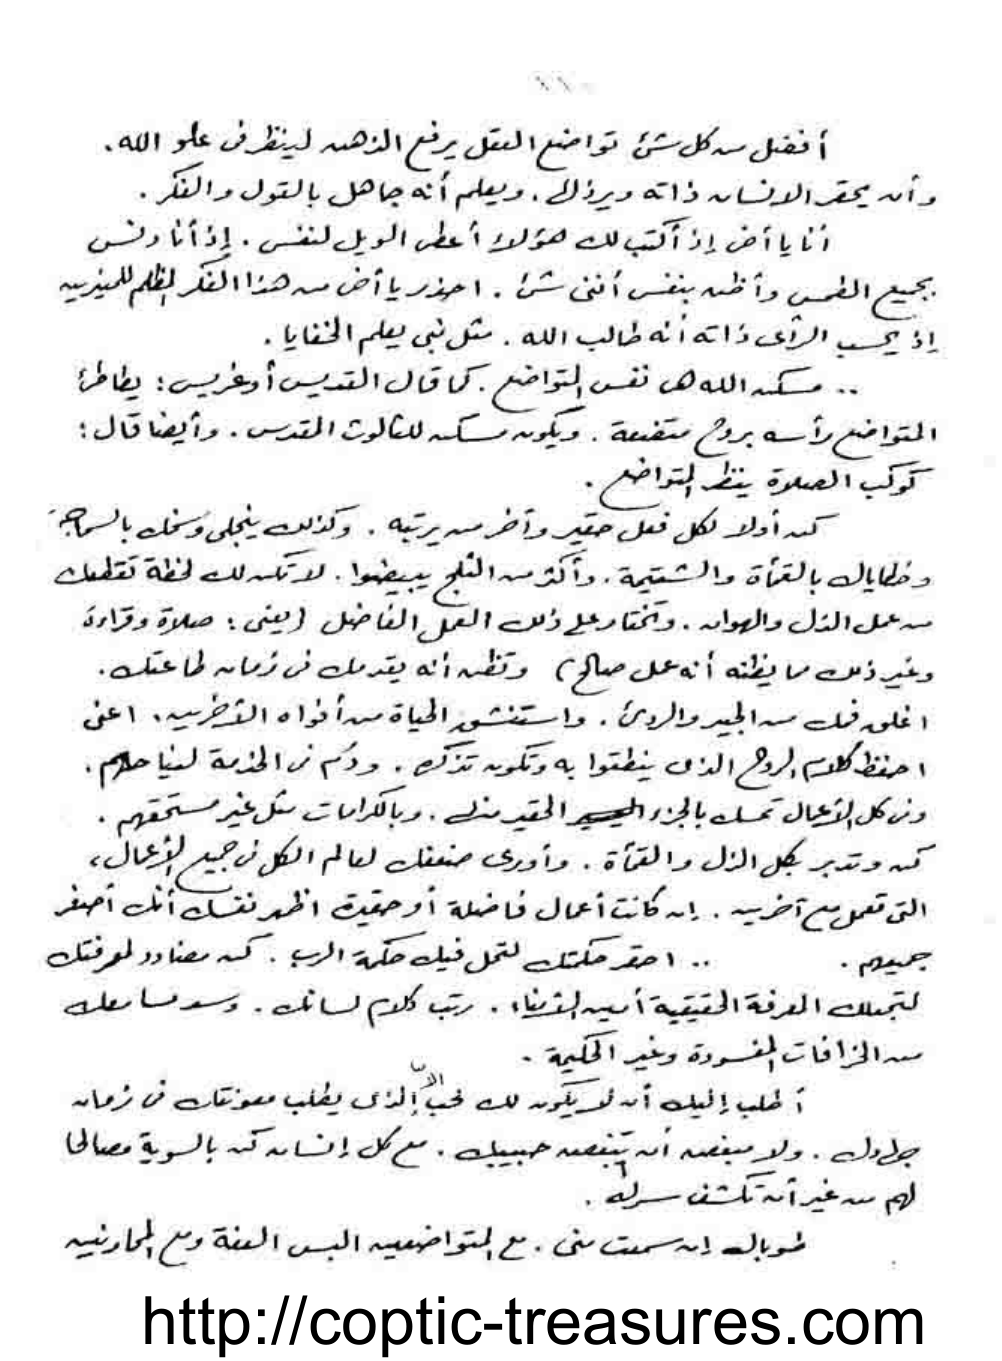 أفضل من كل شئ تواضع العقل يرفع الذهن لينظر فى علو الله.
وأن يحقر الانسان ذاته ويرذلها. ويعلم أنه جاهل بالقول والفكر.
أنا يا أخى إذ أكتب لك هؤلاء أعطى الويل لنفسى. إذ أنا دنس
بجميع وأظن بنفسى أننى شئ. احذر يا أخى من هذا الفكر المظلم للميزين
إذ يحسب الرأى ذاته أنه طالب الله. مثل نبى يعلم الخفايا.
.. مسكن الله هى نفس المتواضع. كما قال القديس أوغريس: يطاطئ
المتواضع رأسه بروح متضعة. ويكون مسكن للثالوث المقدس. وأيضا قال:
كوكب الصلاة ينظر المتواضع.
كن أولا لكل فعل حقير وآخر من يرتبه. وكذلك ينجلى وسخك بالسماجة
وخطاياك بالقمأة والشتيمة. وأكثر من الثلج يبيضوا. لا تكن لك لحظة تقطعك
من عمل الذل والهوان. وتختار على ذلك العمل الفاضل (يعنى: صلاة وقراءة
وغير ذلك مما يظنه أنه عمل صالح) وتظن أنه يقدمك فى زمان طاعتك.
اغلق فمك من الجيد والردئ. واستنشق الحياة من أفواه الآخرين. اعنى
احفظ كلام الروح الذى ينطقوا به وتكون تذكره. ودُم فى الخدمة لنياحهم.
وفى كل الأعمال تمسك بالجزء الحقير منها. وبالكرامات مثل غير مستحقهم.
كن وتدبر بكل الذل والقمأة. وأورى ضعفك لعالم الكل فى جميع الأعمال،
التى تعمل مع آخرين. إن كانت أعمال فاضلة أو حقيرة اظهر نفسك أنك أصغر
جميعهم. .. احقر حكمتك لتحل فيك حكمة الرب. كن مضادد لمعرفتك
لتجعلك المعرفة الحقيقية أمين القرناء. رتب كلام لسانك. وسد مسامعك
من الخرافات المفسودة وغير الحكيمة.
أطلب إليك أن لا يكون لك محب إلا الذى يطلب معونتك فى زمان
جهادك. ولا مبغض أن تبغض حبيبك. مع كل إنسان كن بالسوية مصالحا
لهم من غير أن تكشف سرك.
طوباك إن سمعت منى. مع المتواضعين البس العفة ومع المحاربين
http://coptic-treasures.com